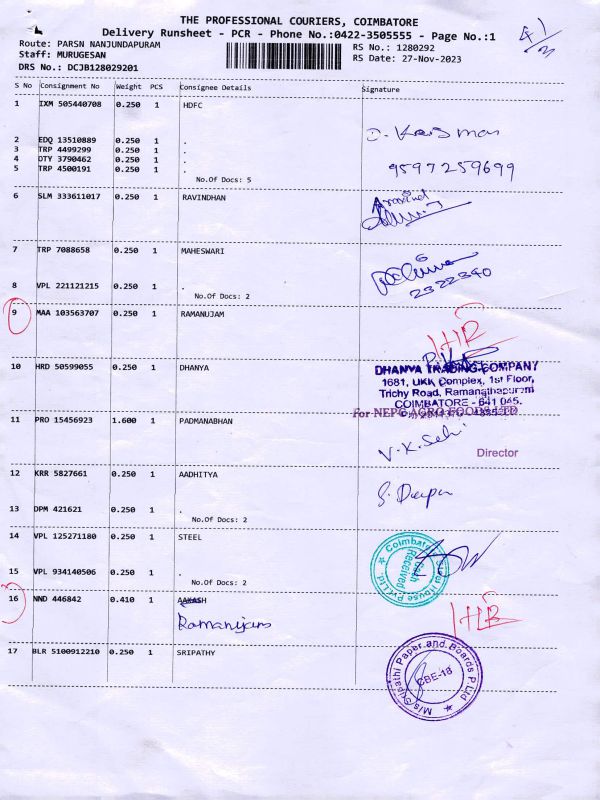 THE PROFESSIONAL COURIERS, COIMBATORE
Delivery Runsheet - PCR - Phone No.:0422-3505555 - Page No.:1
Route: PARSN NANJUNDAPURAM
RS No.: 1280292
Staff: MURUGESAN
RS Date: 27-Nov-2023
DRS No.: DCJB128029201
S No Consignment No Weight PCS Consignee Details Signature
1 IXM 505440708 0.250 1 HDFC
2 EDQ 13510889 0.250 1 .
3 TRP 4499299 0.250 1 .
4 OTY 3790462 0.250 1 .
5 TRP 4500191 0.250 1 .
9597259699
No.Of Docs: 5
6 SLM 333611017 0.250 1 RAVINDHAN
Aravind
7 TRP 7088658 0.250 1 MAHESWARI
8 VPL 221121215 0.250 1 .
2322340
No.Of Docs: 2
9 MAA 103563707 0.250 1 RAMANUJAM
IHR
10 HRD 50599055 0.250 1 DHANYA
DHANYA TRADING COMPANY
1681, UKK Complex, 1st Floor,
Trichy Road, Ramanathapuram
COIMBATORE - 641 045.
for NEPC AGRO FOODS LTD
11 PRO 15456923 1.600 1 PADMANABHAN
V.K.Selvi
Director
12 KRR 5827661 0.250 1 AADHITYA
S. Deepa
13 DPM 421621 0.250 1 .
No.Of Docs: 2
14 VPL 125271180 0.250 1 STEEL
Coimbatore Steel House Pvt Ltd.
Received
15 VPL 934140506 0.250 1 .
No.Of Docs: 2
16 NND 446842 0.410 1 AAKASH
Ramanijam
IHR
17 BLR 5100912210 0.250 1 SRIPATHY
M/s Sripathi Paper and Boards P Ltd
CBE-18